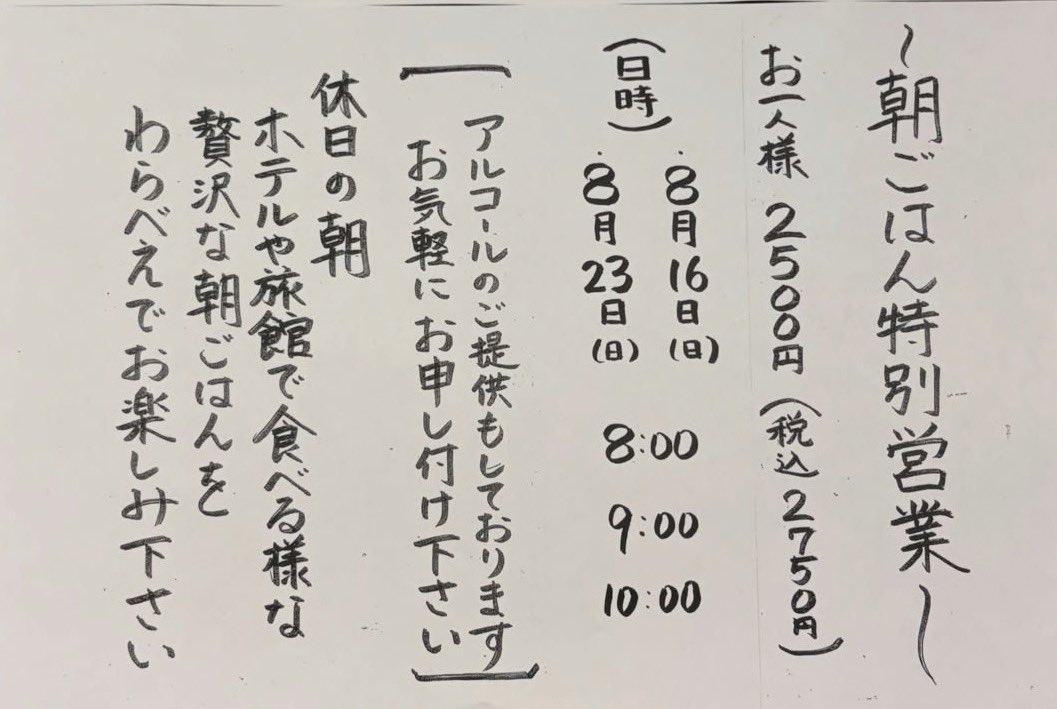 〜朝ごはん特別営業〜
お一人様 2500円(税込2750円)
(日時)
8月16日(日)
8月23日(日)
8:00
9:00
10:00
「アルコールのご提供もしております
お気軽にお申し付け下さい」
休日の朝
ホテルや旅館で食べる様な
贅沢な朝ごはんを
わらべえでお楽しみ下さい